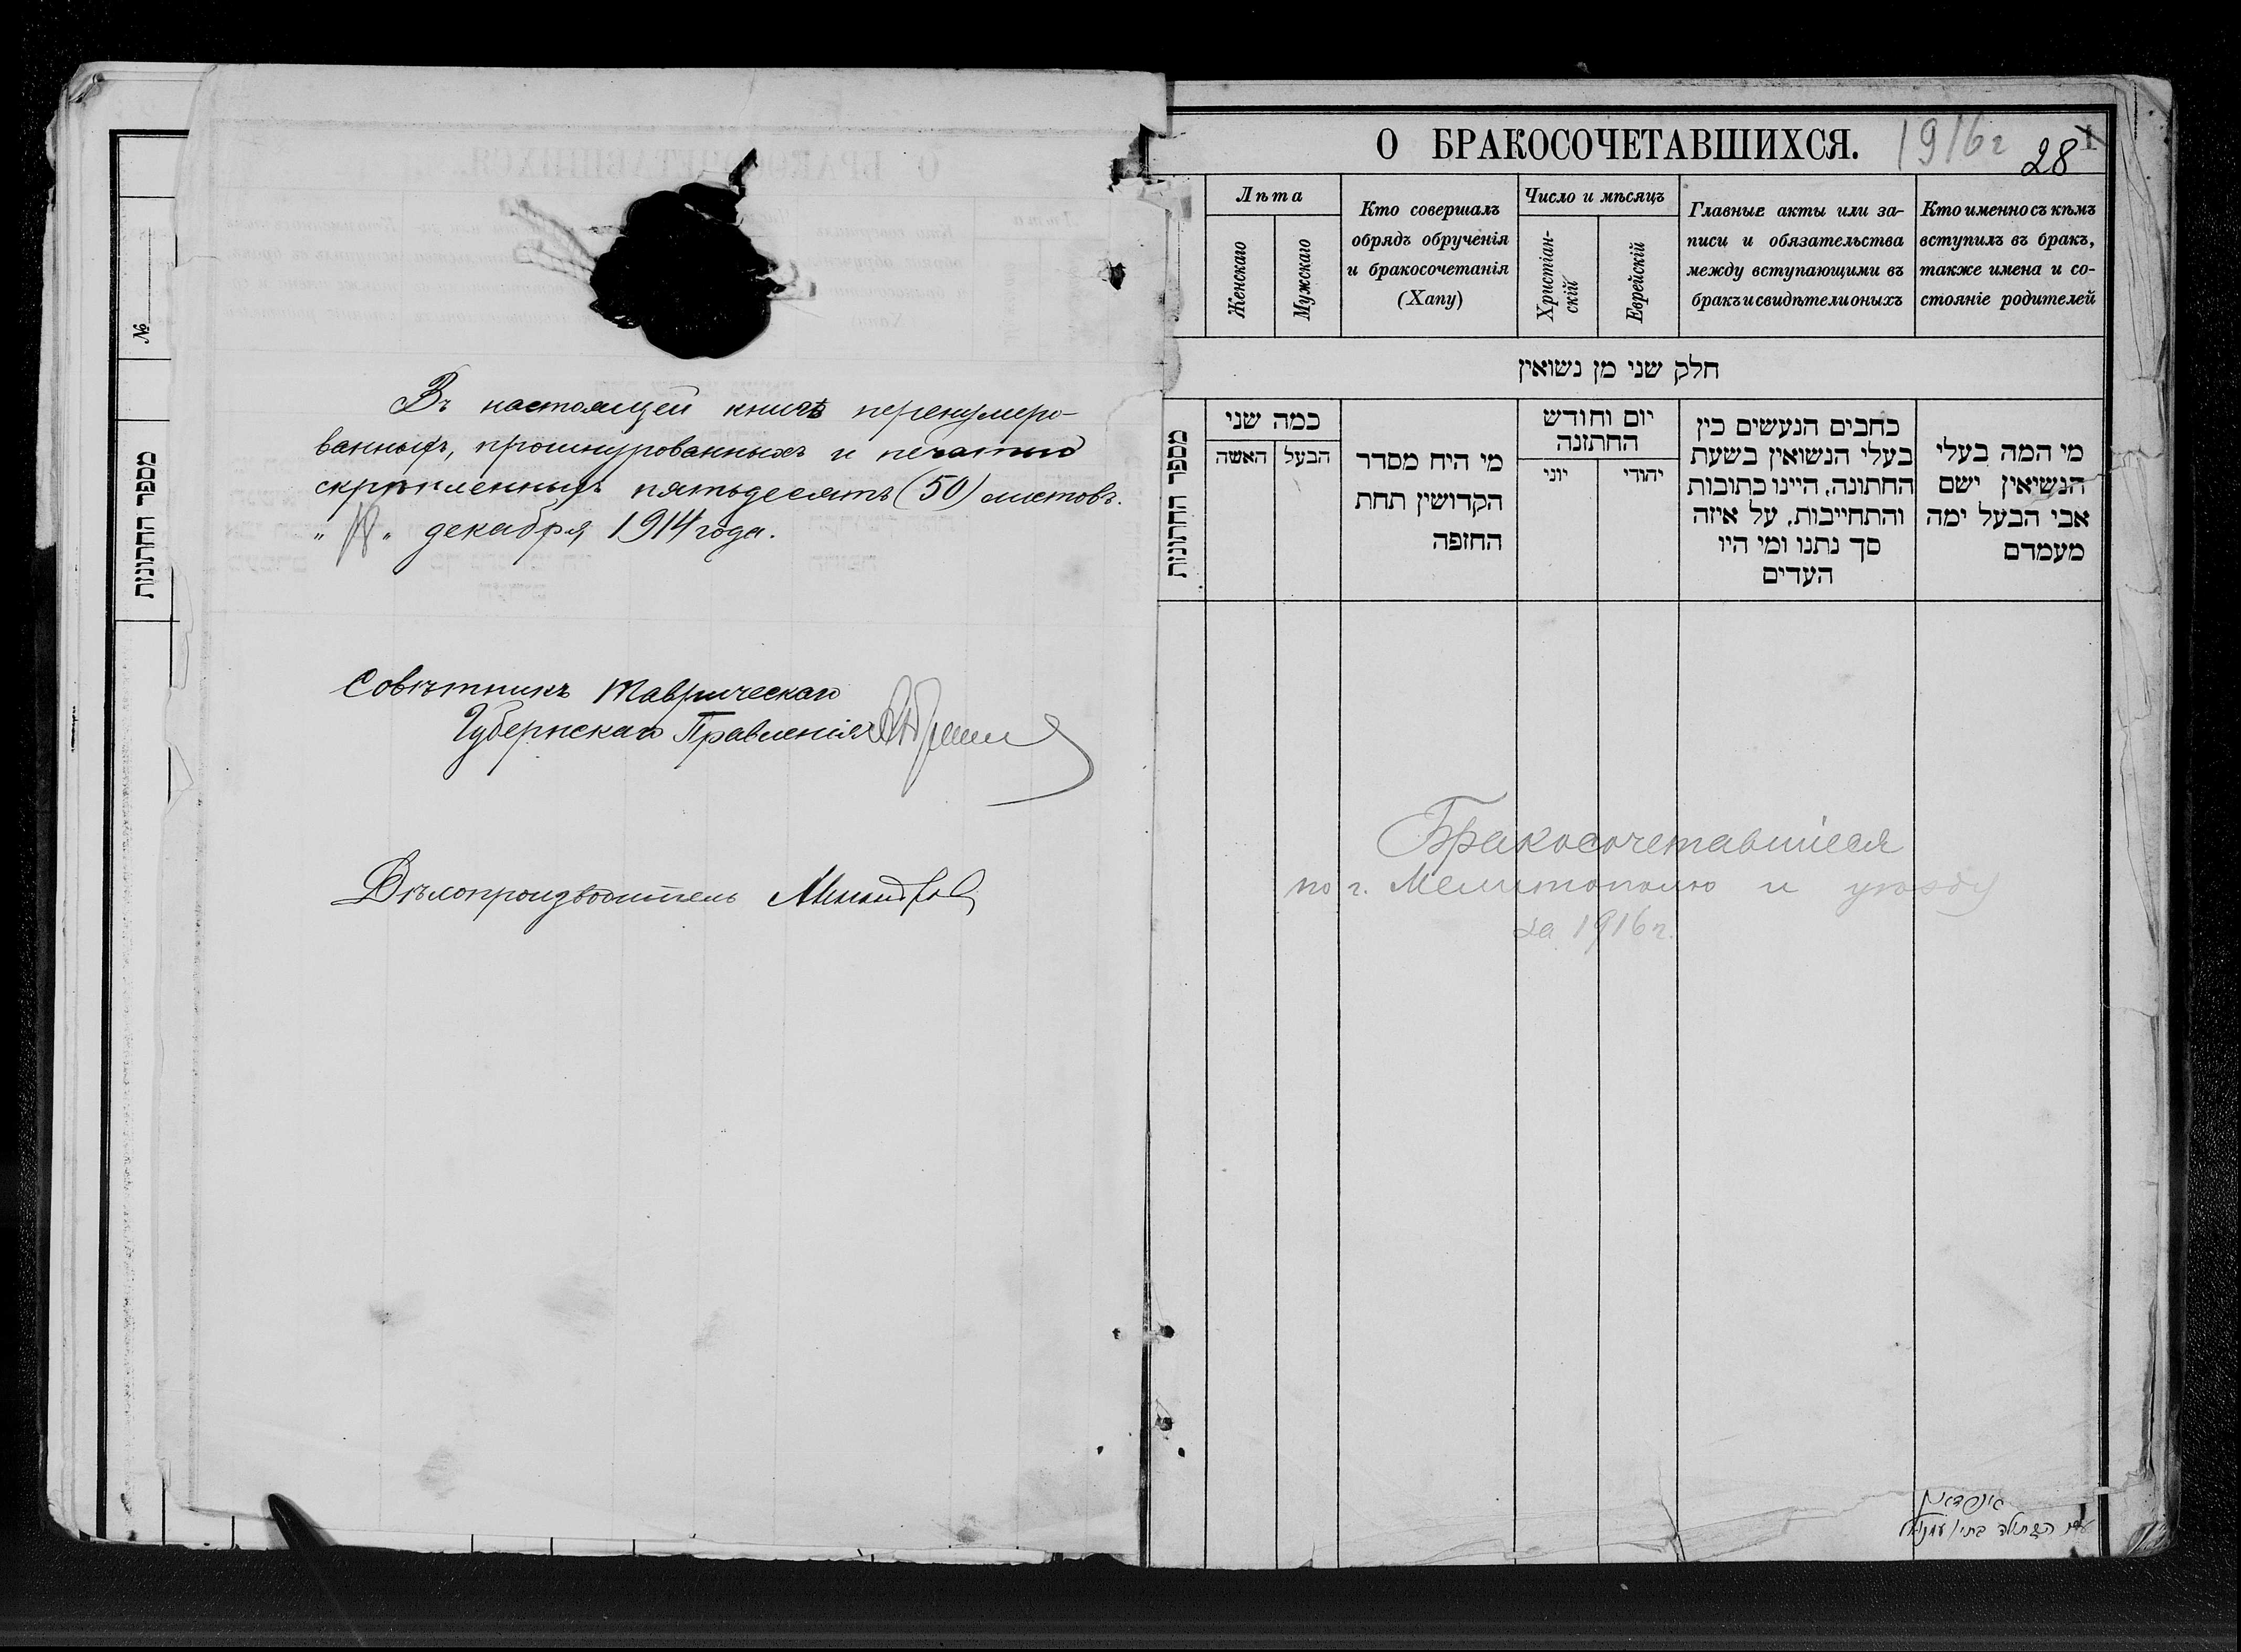 №
מספר החתונות
Въ настоящей книгѣ перенумеро-
ванныхъ, прошнурованныхъ и печатью
скрѣпленныхъ пятьдесятъ (50) листовъ.
" " декабря 1914 года.
Совѣтникъ Таврическаго
Губернскаго Правленія
Дѣлопроизводитель
О БРАКОСОЧЕТАВШИХСЯ.
1916 г
28
1
Лѣта
Женскаго
Мужскаго
Кто совершалъ
обрядъ обрученія
и бракосочетанія
(Хапу)
Число и мѣсяцъ
Христіан-
скій
Еврейскій
Главные акты или за-
писи и обязательства
между вступающими въ
бракъ и свидѣтели оныхъ
Кто именно съ кѣмъ
вступилъ въ бракъ,
также имена и со-
стояніе родителей
חלק שני מן נשואין
מספר החתונות
כמה שני
האשה
הבעל
מי היח מסדר
הקדושין תחת
החזפה
יום וחודש
החתזנה
יוני
יהודי
כחבים הנעשים כין
בעלי הנשואין בשעת
החתונה, היינו כתובות
והתחייבות, על איזה
סך נתנו ומי היו
העדים
מי המה בעלי
הנשיאין ישם
אבי הבעל ימה
מעמדם
Бракосочетавшіеся
по г. Мелитополю и уѣзду
за 1916 г.